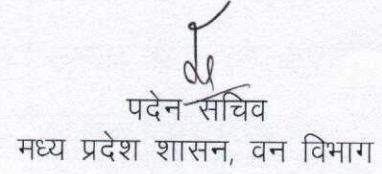 पदेन सचिव
मध्य प्रदेश शासन, वन विभाग